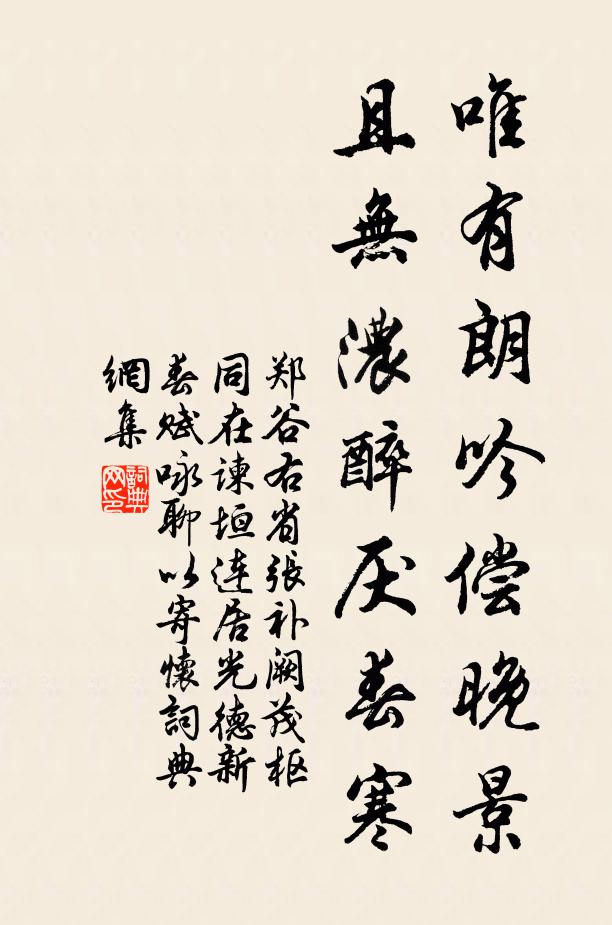 唯有朗吟偿晚景
且無濃醉厌春寒
郑谷右省張补阙茂枢
同在諫垣连居光德新
春赋咏聊以寄懷詞典
網集
詞典網印